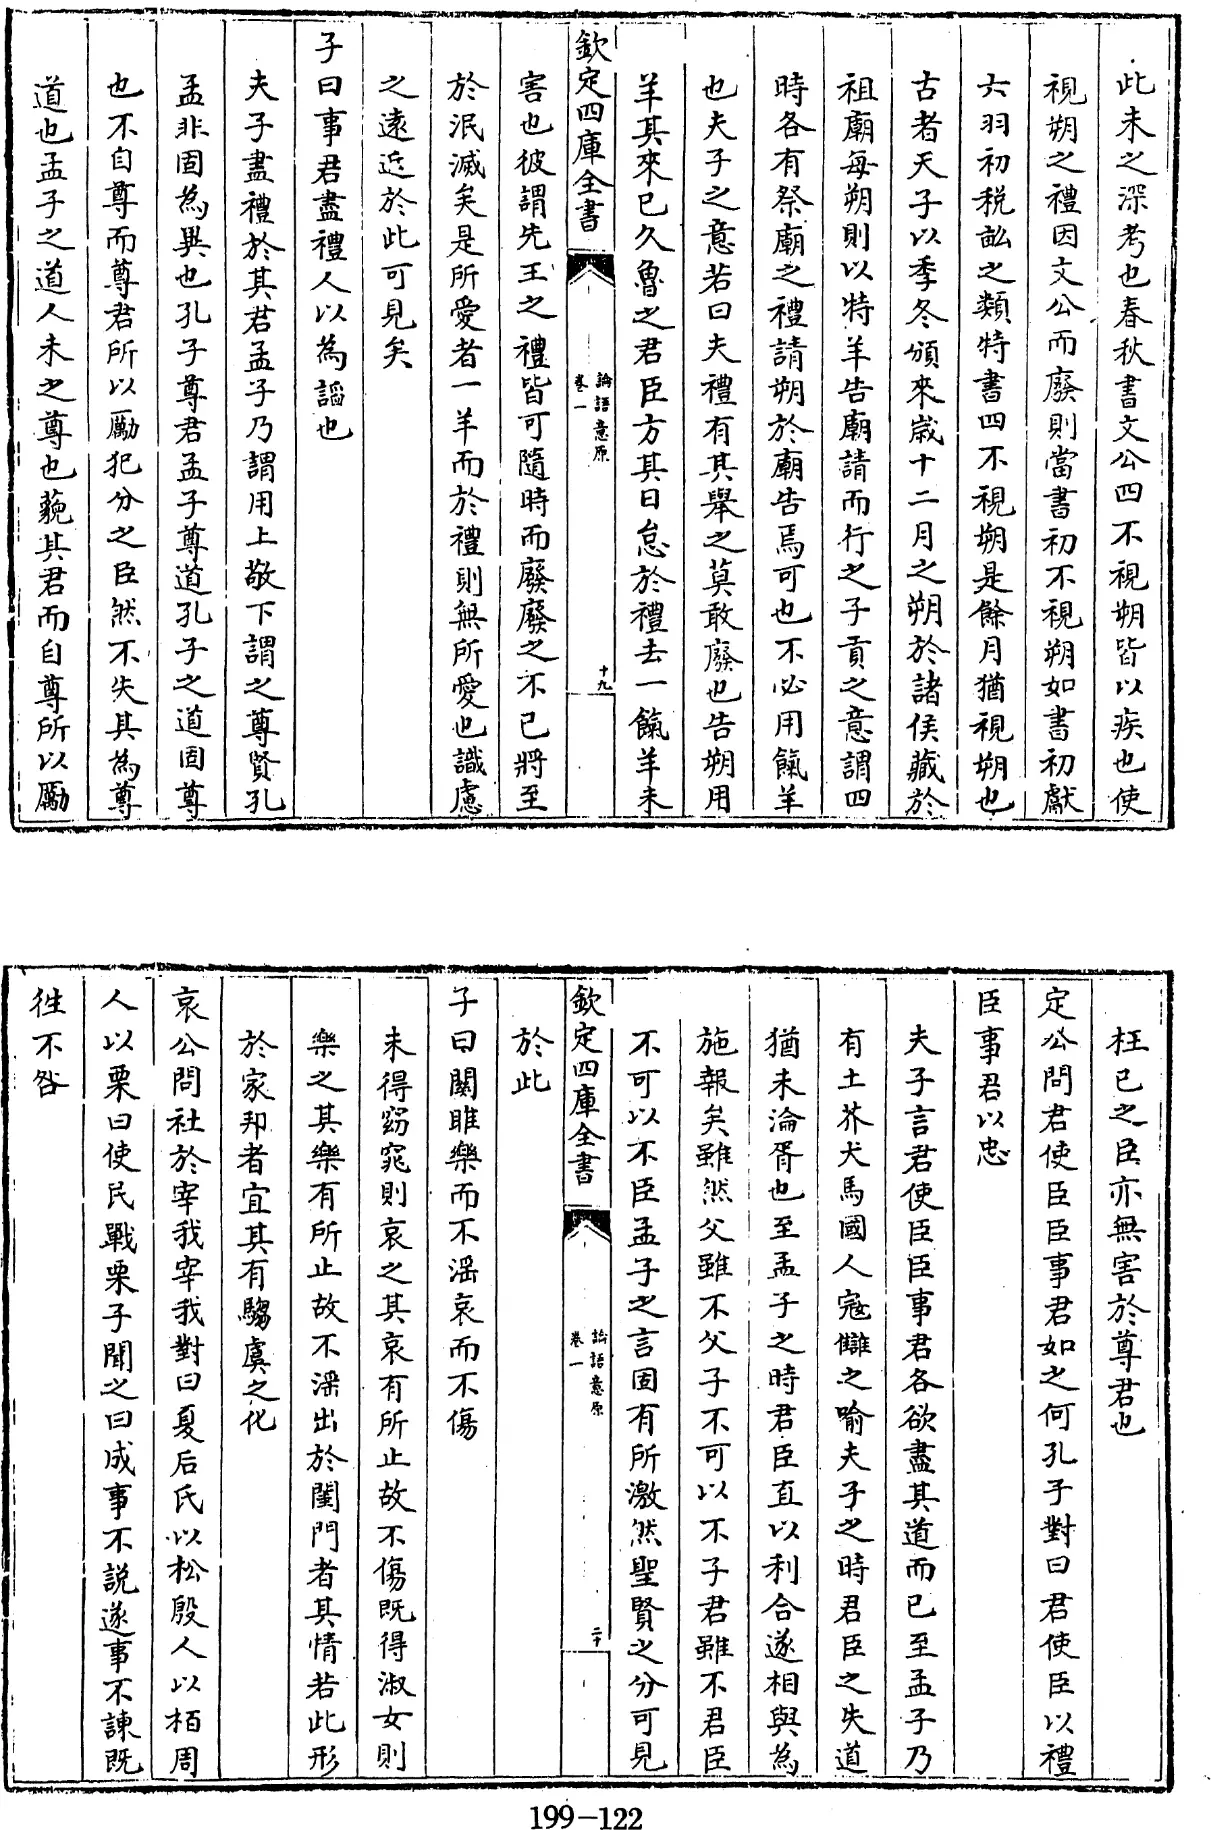 此未之深考也春秋書文公四不視朔皆以疾也使
視朔之禮因文公而廢則當書初不視朔如書初獻
六羽初税畝之類特書四不視朔是餘月猶視朔也
古者天子以季冬頒來嵗十二月之朔於諸侯藏於
祖廟每朔則以特羊告廟請而行之子貢之意謂四
時各有祭廟之禮請朔於廟告焉可也不必用餼羊
也夫子之意若曰夫禮有其舉之莫敢廢也告朔用
羊其來已久魯之君臣方其日怠於禮去一餼羊未
欽定四庫全書
論語意原
卷一
十九
害也彼謂先王之禮皆可隨時而廢廢之不已將至
於泯滅矣是所愛者一羊而於禮則無所愛也識慮
之遠近於此可見矣
子曰事君盡禮人以為諂也
夫子盡禮於其君孟子乃謂用上敬下謂之尊賢孔
孟非固為異也孔子尊君孟子尊道孔子之道固尊
也不自尊而尊君所以勵犯分之臣然不失其為尊
道也孟子之道人未之尊也藐其君而自尊所以勵
枉已之臣亦無害於尊君也
定公問君使臣臣事君如之何孔子對曰君使臣以禮
臣事君以忠
夫子言君使臣臣事君各欲盡其道而已至孟子乃
有土芥犬馬國人寇讎之喻夫子之時君臣之失道
猶未淪胥也至孟子之時君臣直以利合遂相與為
施報矣雖然父雖不父子不可以不子君雖不君臣
不可以不臣孟子之言固有所激然聖賢之分可見
欽定四庫全書
論語意原
卷一
二十
於此
子曰關雎樂而不淫哀而不傷
未得窈窕則哀之其哀有所止故不傷既得淑女則
樂之其樂有所止故不淫出於閨門者其情若此形
於家邦者宜其有騶虞之化
哀公問社於宰我宰我對曰夏后氏以松殷人以栢周
人以栗曰使民戰栗子聞之曰成事不說遂事不諫既
徃不咎
199-122